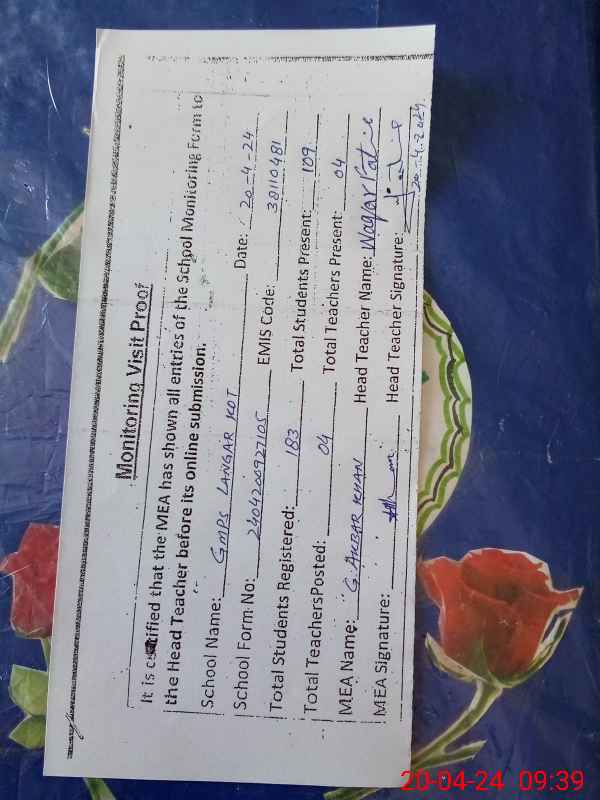 Monitoring Visit Proof
It is certified that the MEA has shown all entries of the School Monitoring Form to
the Head Teacher before its online submission.
School Name: GMPS LANGAR KOT Date: 20-4-24
School Form No: 2404200927105 EMIS Code: 38110481
Total Students Registered: 183 Total Students Present: 109
Total TeachersPosted: 04 Total Teachers Present: 04
MEA Name: G. AKBAR KHAN Head Teacher Name:
MEA Signature: Head Teacher Signature:
20-4-2024.
20-04-24 09:39